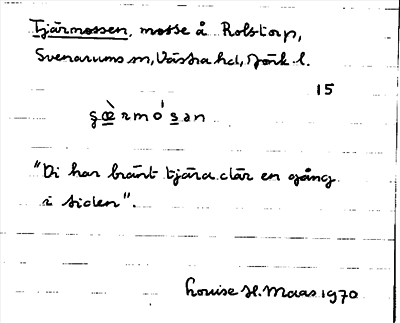 Tjärmossen, mosse å Rolstorp,
Svenarums sn, Västra hd, Jönk. l.
15
"Di har bränt tjära där en gång
i tiden".
Louise H. Maas 1970